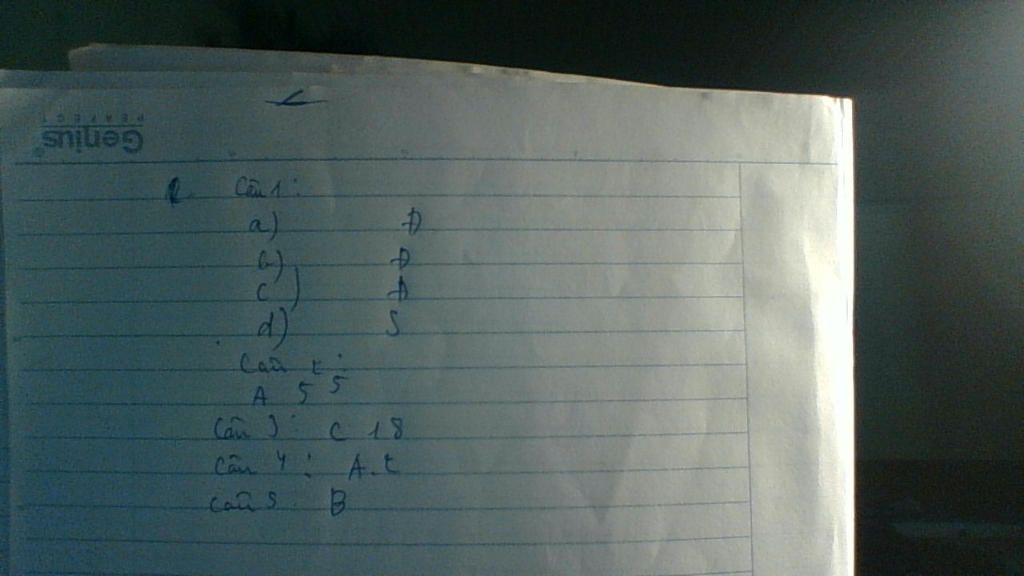 Genius
PERFECT
Câu 1:
a) Đ
b) Đ
c) Đ
d) S
Câu 2:
A 5 5
Câu 3: C 18
Câu 4: A. 2
Câu 5: B